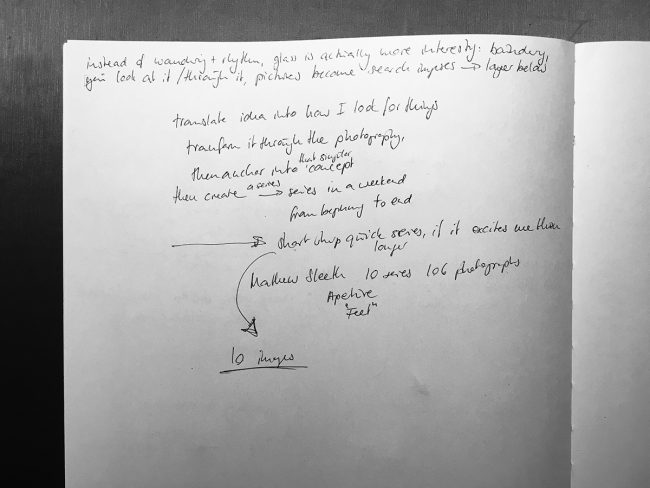 instead of wandring + rhythm, glass is actually more interesty: boundary,
you look at it / through it, pictures become search images → layer below
translate idea into how I look for things
transform it through the photography,
then anchor into that singular concept
then create a series → series in a weekend
from beginning to end
→ short sharp quick series, if it excites me then
longer
Mathew Sleeth 10 series 106 photographs
Aperture
"Feet"
10 images